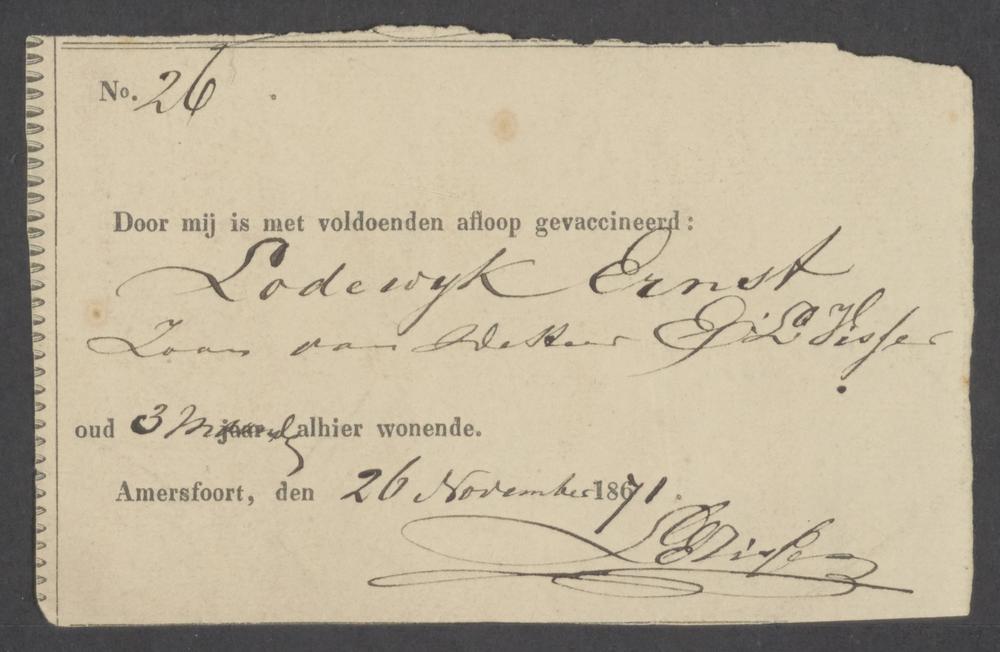 No. 26
Door mij is met voldoenden afloop gevaccineerd:
Lodewyk Ernst
Zoon van de Heer G. L. Visser
oud 3 Maand jaar, alhier wonende.
Amersfoort, den 26 November 1871.
Visser